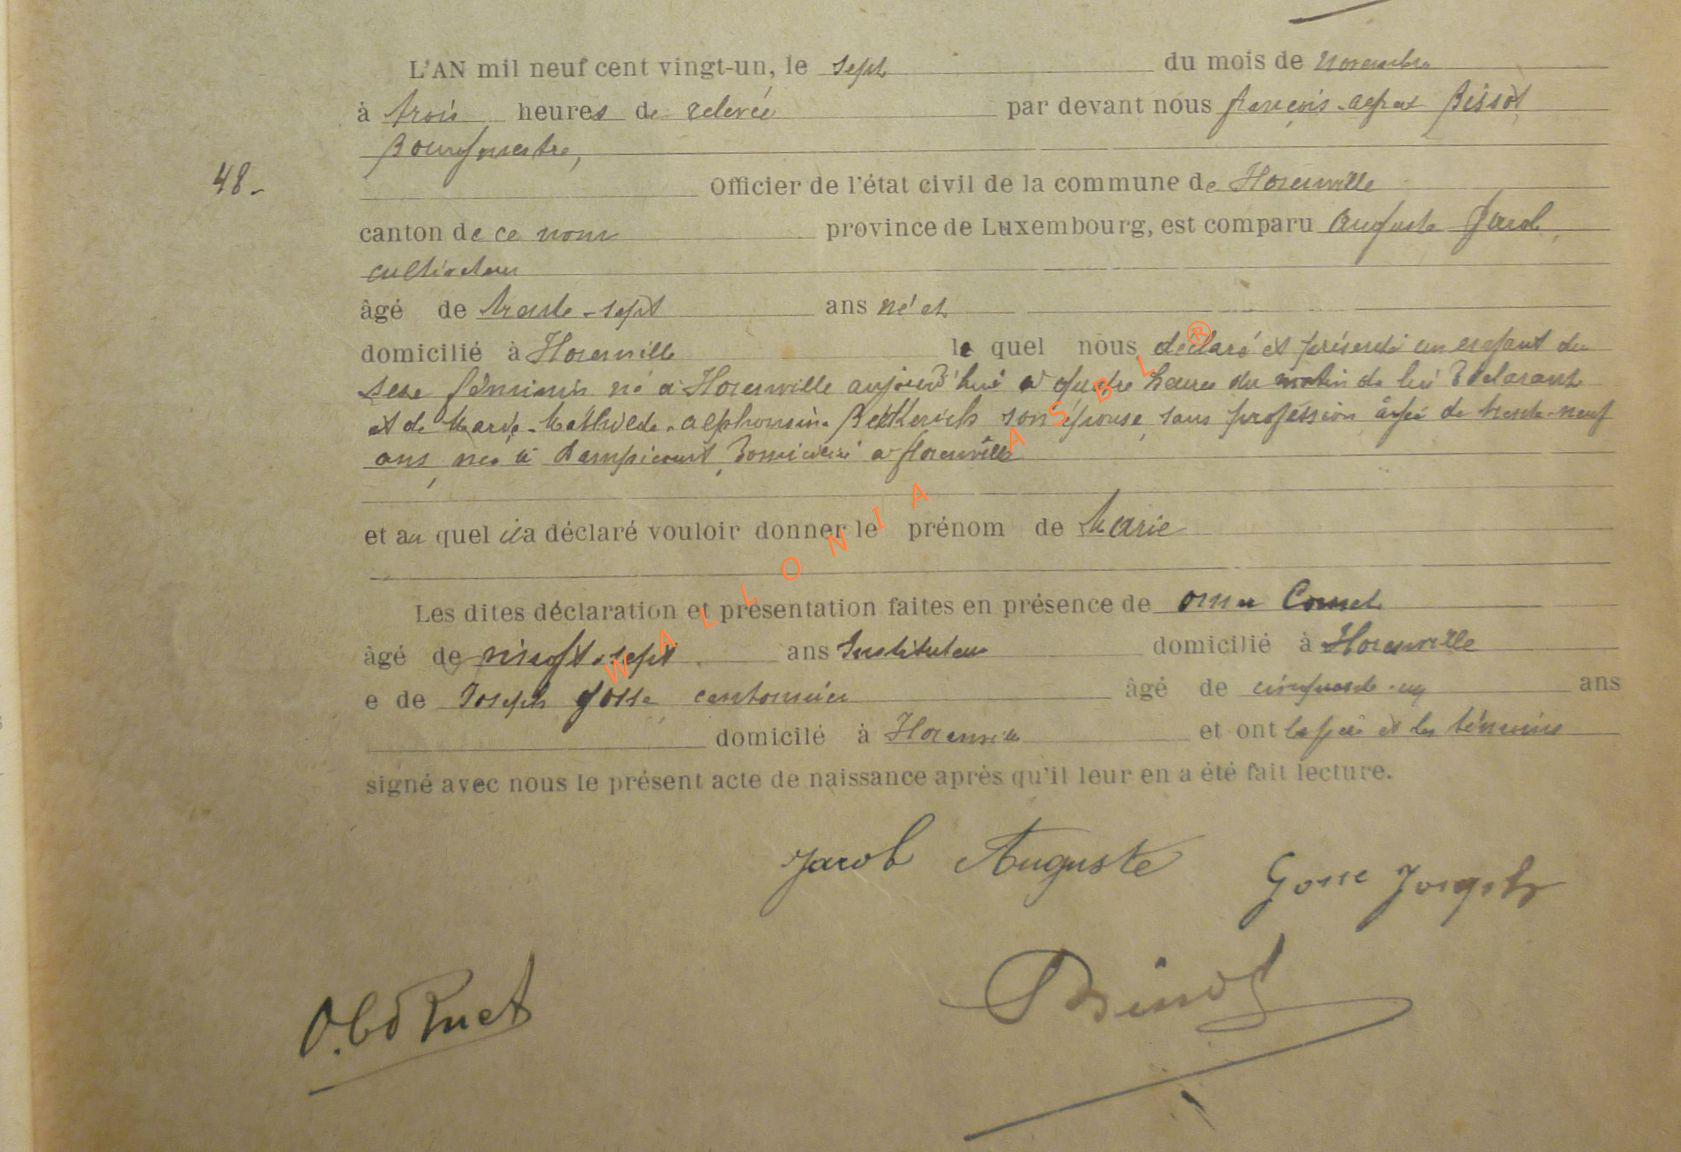 L'AN mil neuf cent vingt-un, le sept du mois de novembre
à trois heures de relevée par devant nous françois-alfred Bissot
Bourgmestre,
48- Officier de l'état civil de la commune de Florenville
canton de ce nom province de Luxembourg, est comparu Auguste Jacob,
cultivateur
âgé de trente-sept ans né et
domicilié à Florenville le quel nous déclaré et présenté un enfant du
sexe féminin né à Florenville aujourd'hui à quatre heures du matin de lui Déclarant
et de Marie-Mathilde-alphonsine son épouse, sans profession âgée de trente-neuf
ans, née à Dampicourt, Domiciliée à florenville
et au quel il a déclaré vouloir donner le prénom de Marie
Les dites déclaration et présentation faites en présence de omer Cornet
âgé de vingt-sept ans Instituteur domicilié à Florenville
e de Joseph gosse cantonnier âgé de cinquante-un ans
domicilé à Florenville et ont le père et les témoins
signé avec nous le présent acte de naissance après qu'il leur en a été fait lecture.
Jacob Auguste Gosse Joseph
O. Cornet Bissot
WALLONIA ASBL ®